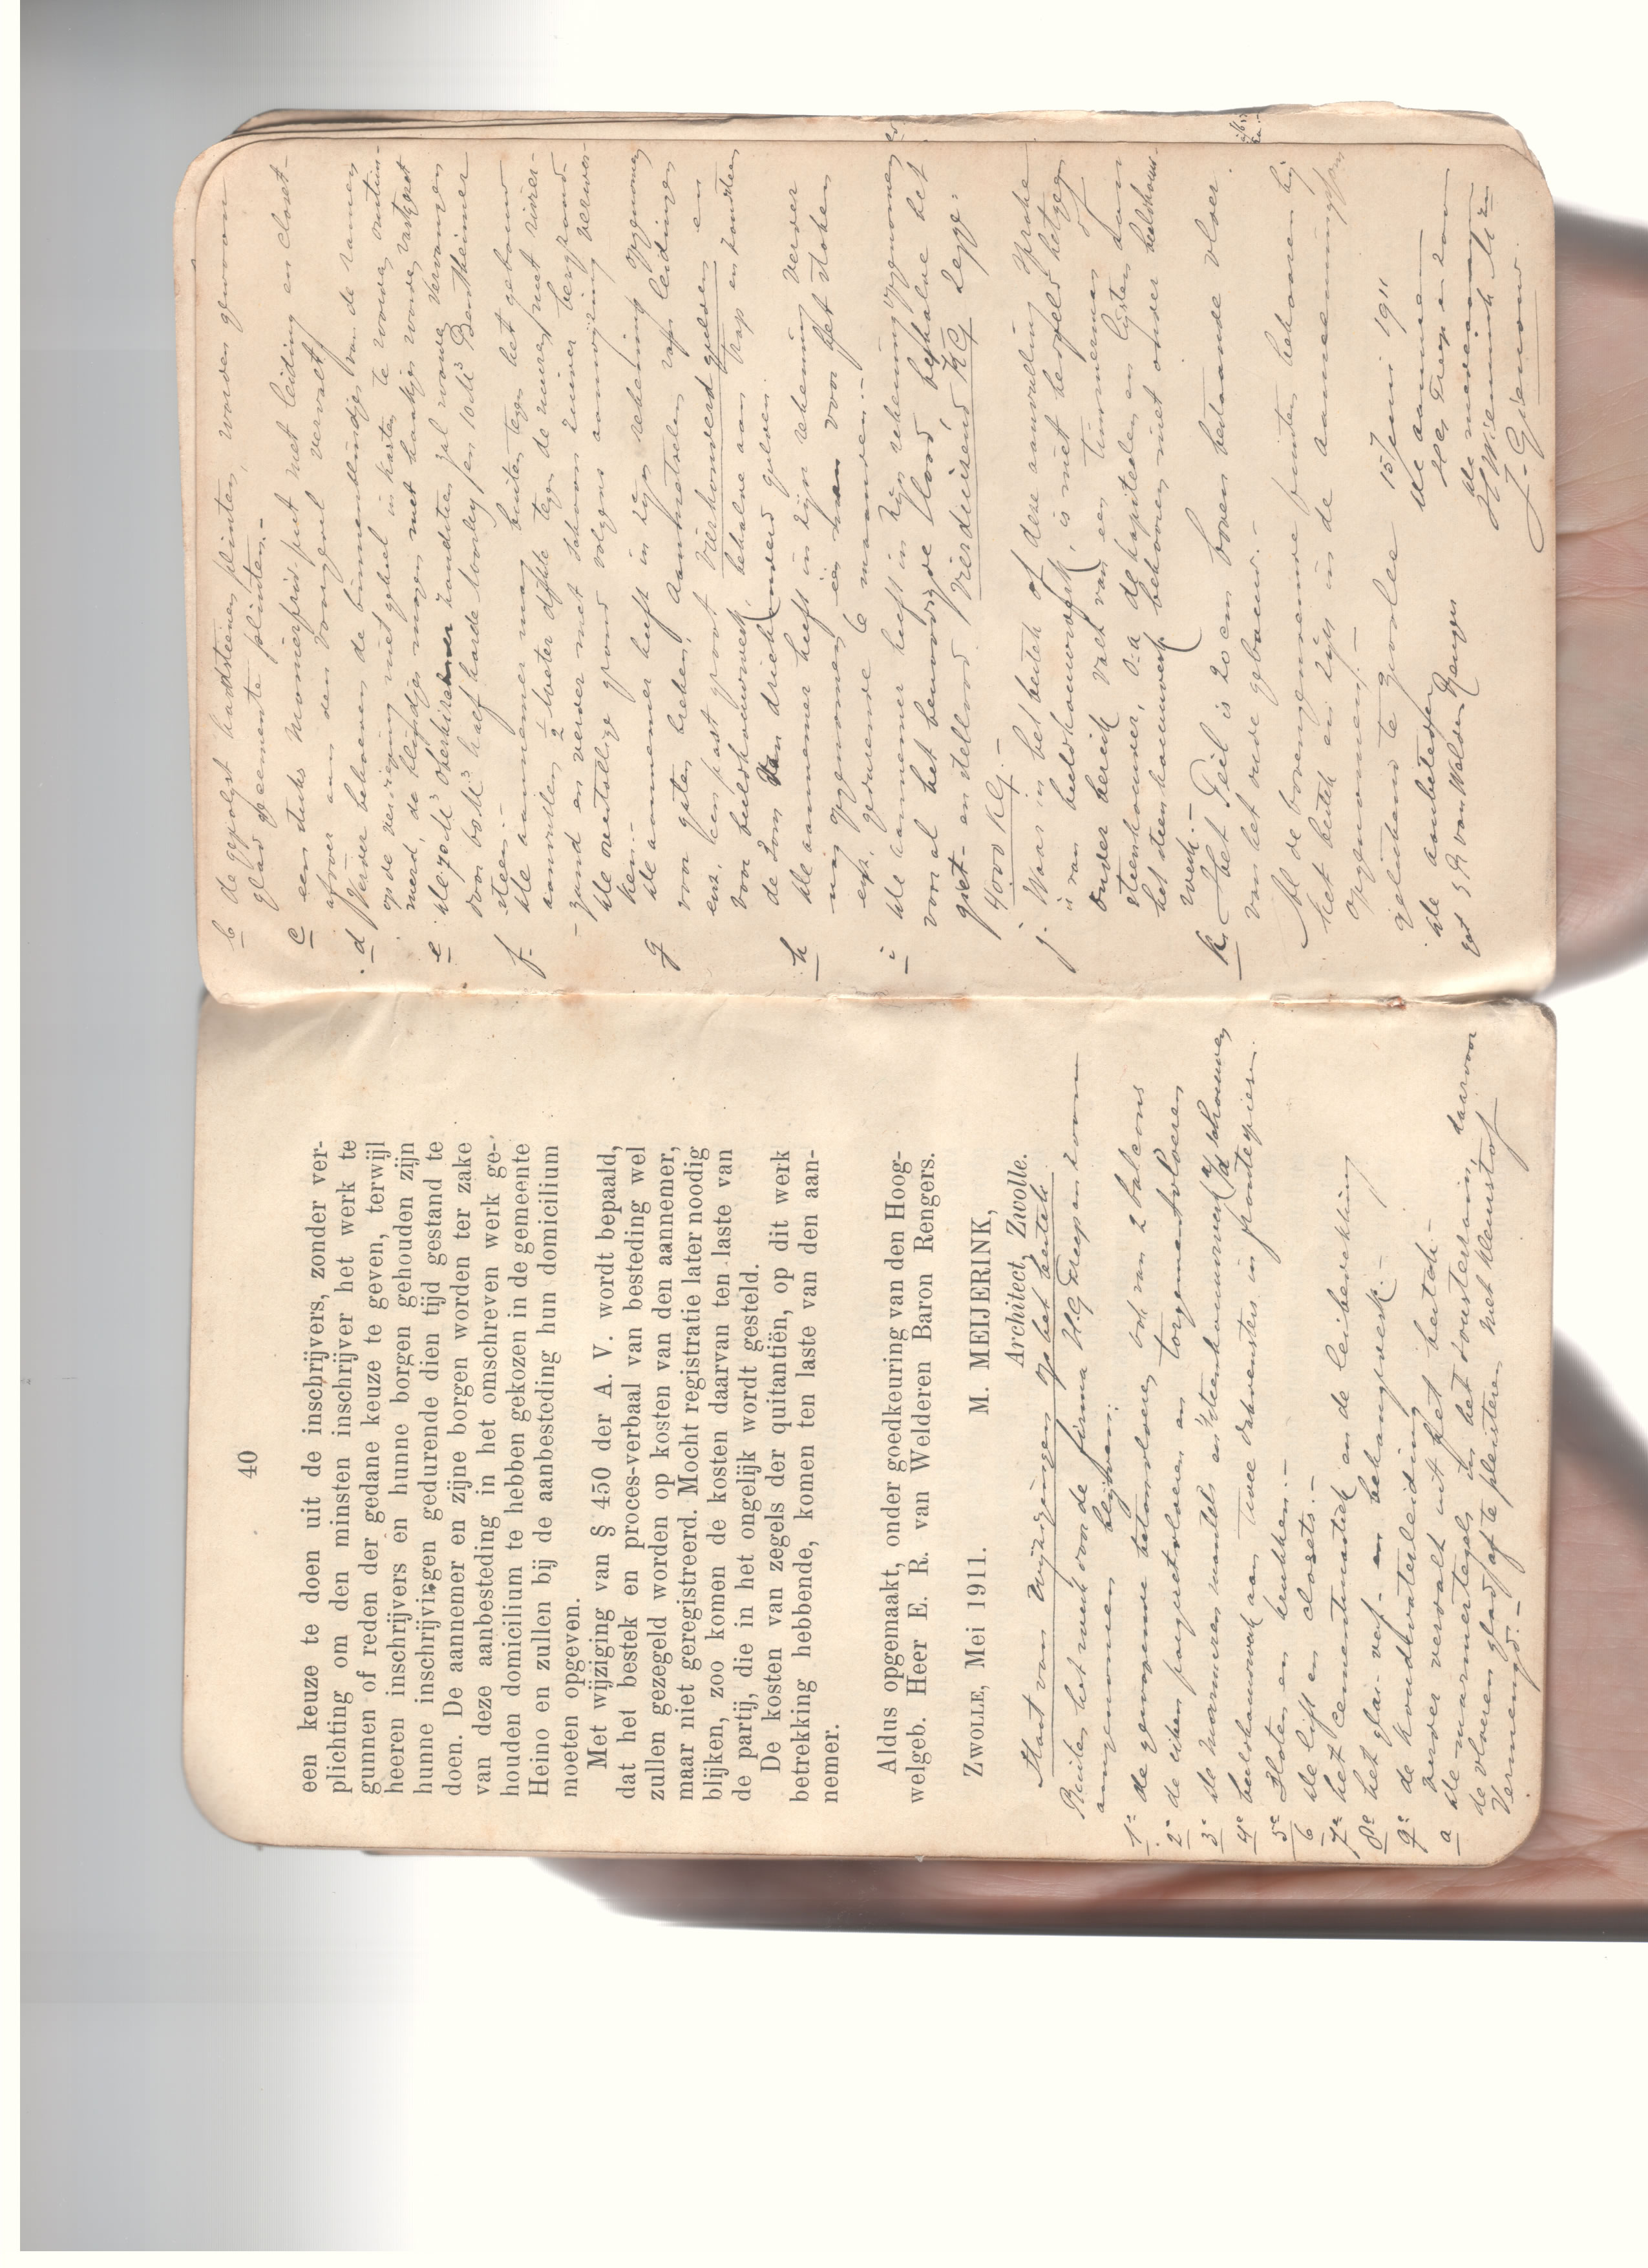 40
een keuze te doen uit de inschrijvers, zonder ver-
plichting om den minsten inschrijver het werk te
gunnen of reden der gedane keuze te geven, terwijl
heeren inschrijvers en hunne borgen gehouden zijn
hunne inschrijvingen gedurende dien tijd gestand te
doen. De aannemer en zijne borgen worden ter zake
van deze aanbesteding in het omschreven werk ge-
houden domicilium te hebben gekozen in de gemeente
Heino en zullen bij de aanbesteding hun domicilium
moeten opgeven.
Met wijziging van § 450 der A. V. wordt bepaald,
dat het bestek en proces-verbaal van besteding wel
zullen gezegeld worden op kosten van den aannemer,
maar niet geregistreerd. Mocht registratie later noodig
blijken, zoo komen de kosten daarvan ten laste van
de partij, die in het ongelijk wordt gesteld.
De kosten van zegels der quitantiën, op dit werk
betrekking hebbende, komen ten laste van den aan-
nemer.
Aldus opgemaakt, onder goedkeuring van den Hoog-
welgeb. Heer E. R. van Welderen Baron Rengers.
ZWOLLE, Mei 1911. M. MEIJERINK,
Architect, Zwolle.
Staat van wijzigingen op het bestek
Buiten het werk voor de firma H.G. Treep en zoon
aangenomen blijven:
1e de gewapende betonvloeren ook van 2 balcons
2e de eiken parquetvloeren en torgamentvloeren
3e de marmeren mantels en steenhouwwerk schouwen
4e beeldhouwwerk aan twee dakvensters in frontespiesen
5e Sloten en krukken.-
6 de lift en closets.-
7e het cementmastiek en de leibedekking
8e het glas- verf- en behangwerk.-
9e de koudwaterleiding
verder vervalt uit het bestek -
a de marmertegels in het souterrain, daarvoor
de vloeren glad af te pleisteren met kleurstof
vermengd.-
b de gepolijst hardsteenen plinten, worden gewoon
glad gecemente plinten.-
c een stuks Monierprid. put met leiding en closet-
afvoer aan den voorgevel vervalt
d Verder behoeven de binnenblindjes van de ramen
op de verdieping niet geheel in kasten te worden
merd, de kleindjes mogen met haakjes worden vastgezet
e de 70 M3 Oberkirchner zandsteen zal worden vervangen
door 60 M3 half harde lorrley en 10 M3 Bentheimer
steen.-
f. De aannemer mag buiten tegen het gebouw
aanvullen 2 Meter dikte tegen de muren met rivier-
zand en verder met schoon zuiver bergzand
de overtollige grond volgens aanwijzing verwer-
ken.-
g de aannemer heeft in zijn rekening opgenomen
voor gaten breken, aanhestelen van leidingen
enz. een post groot vierhonderd gulden en
voor beeldhouwwerk, behalve aan trap en zonder
de som van driehonderd gulden.
h de aannemer heeft in zijn rekening verder
nog opgenomen een man voor het stoken
enz. gedurende 6 maanden.-
i de aannemer heeft in zijn rekening opgenomen
voor al het benoodigde lood behalve het
giet- en stellood vierduizend KG Zegge:
4000 KG.-
j. Waar in het bestek of deze aanvulling sprake
is van beeldhouwwerk, is niet hetgeen
onder bereik valt van een timmerman of
steenhouwer, o.a. de kapiteelen en lijsten aan
het steenhouwwerk behooren niet onder beeldhouw-
werk.-
k. Het Peil is 20 cm boven bestaande vloer
van het oude gebouw.-
Al de bovengenoemde punten behooren bij
het bestek en zijn in de aanneemingssom
opgenomen.-
geteekend te Zwolle 15 Juni 1911
de aanbesteder de aannemer
get E R van Welderen Rengers H G Treep en Zoon